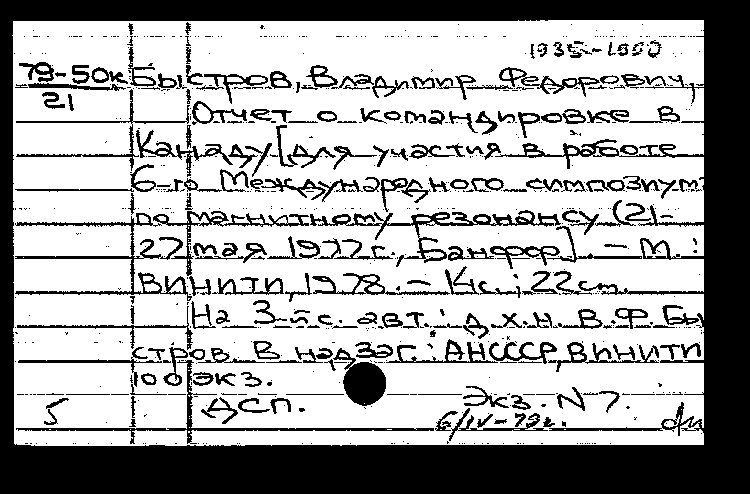 1935-1990
79-50к Быстров, Владимир Федорович,
21
Отчет о командировке в
Канаду [для участия в работе
6-го Международного симпозиума
по магнитному резонансу (21-
27 мая 1977г., Банфф]. - М.:
ВИНИТИ, 1978. - Кс.; 22 см.
На 3-й с. авт.: д.х.н. В.Ф. Бы
стров. В надзаг.: АНСССР, ВИНИТИ
100 экз.
5 ДСП. Экз. N 7.
6/IV-79г.